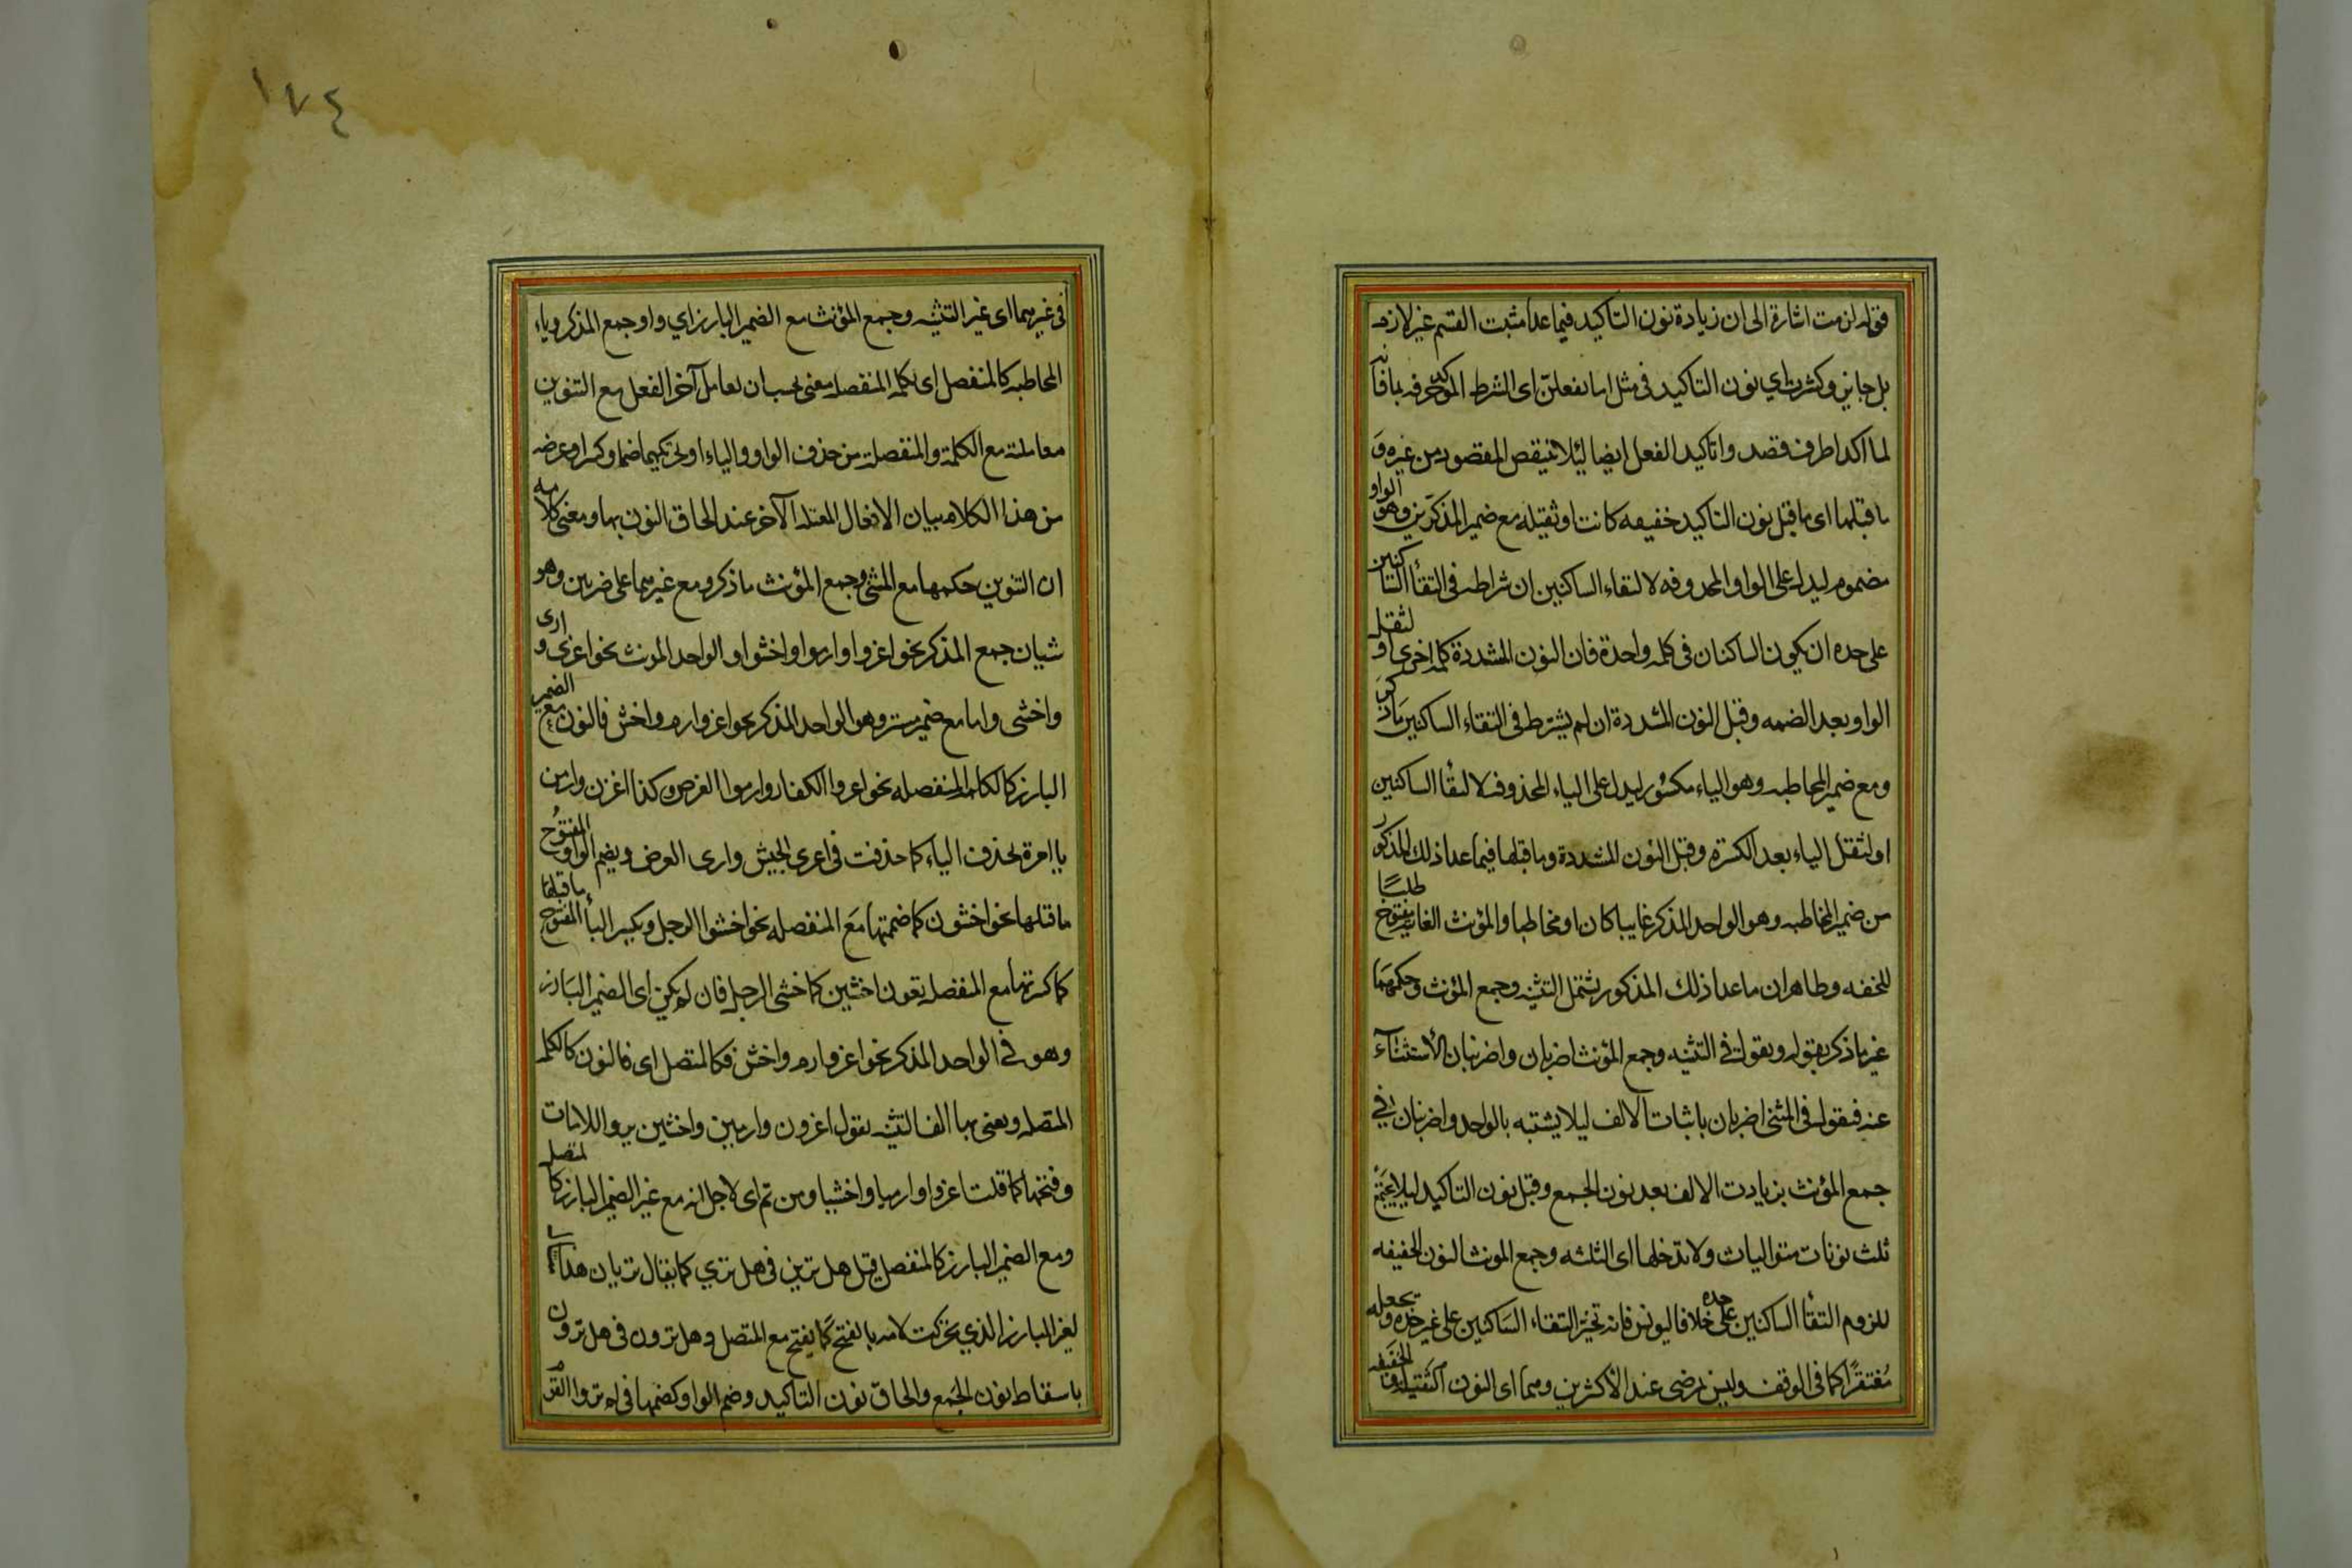 فقوله لزمت اشارة الى ان زيادة نون التاكيد فيما عدا مثبت القسم غير لازمه
بل جايز وكثرت اي نون التاكيد في مثل اما تفعلن اى الشرط الموكد حرفه بما فانه
لما اكد الحرف قصدوا تاكيد الفعل ايضا ليئلا ينتقص المقصود من غيره و
ما قبلها اى ما قبل نون التاكيد خفيفه كانت او ثقيله مع ضمير المذكرين وهو الواو
مضموم ليدل على الواو المحدوفه لالتقاء الساكنين ان شرط فى التقأ الساكنين
على حده ان يكون الساكنان فى كلمه واحدة فان النون المشددة كلمه اخرى او لثقل
الواو بعد الضمه وقبل النون المشددة ان لم يشترط فى التقاء الساكنين ماذكر
ومع ضمير المخاطبه وهو الياء مكسور ليدل على الياء المحذوفه لالتقأ الساكنين
او لثقل الياء بعد الكسرة وقبل النون المشددة وما قبلها فيما عدا ذلك المذكور
من ضمير المخاطبه وهو الواحد المذكر غايبا كان او مخاطبا والمؤنث الغايبه مفتوح طلبًا
للخفه وظاهر ان ما عدا ذلك المذكور يشتمل التثنيه وجمع المؤنث وحكمهما
غير ما ذكر بقوله ويقول فى التثنيه وجمع المؤنث اضربان واضربنان الأستثنآء
عنه فيقول فى المثنى اضربان باثبات الالف ليلا يشتبه بالواحد واضربنان في
جمع المؤنث بزيادت الالف بعد نون الجمع وقبل نون التاكيد ليلا يجتمع
ثلث نونات متواليات ولا تدخلها اى التثنيه وجمع المونث النون الخفيفه
للزوم التقأ الساكنين على حده خلافا ليونس فانه تجيز التقاء الساكنين على غير حده وتجعله
مُغتفرًا كما فى الوقف وليس بمرضى عند الأكثرين وهما اى النون الثقيله والخفيفه
١٧٤
فى غيرهما اى غير التثنيه وجمع المؤنث مع الضمير البارز اي واو جمع المذكر وياء
المخاطبه كالمنفصل اى كالكلمه المنفصله معنى يجب ان يعامل آخر الفعل مع التنوين
معاملته مع الكلمة والمنفصلة من حذف الواو والياء او تحريكهما ضما وكسرا وغرضه
من هذا الكلام بيان الافعال المعتله الآخر عند الحاق النون بها ومعنى كلامه
ان التنوين حكمها مع المثنى وجمع المؤنث ما ذكر ومع غيرهما على ضربين وهو
شيان جمع المذكر نحو اغزوا وارموا واخشوا والواحد المونث نحو اغزى وارمى
واخشى واما مع ضمير مستتر وهو الواحد المذكر نحو اغز وارم واخش فالنون مع الضمير
البارز كالكلمه المنفصله نحو اغزوا الكفار وارموا الغرض وكذا اغزن وارمن
يا امرة بحذف الياء كما حذفت فى اغزى الجيش وارمى الغرض ويضم الواو المفتوح
ما قبلها نحو اخشون كما ضممتها مَع المنفصله نحو اخشوا الرجل ويكسر اليأ المفتوح ما قبلها
كما كسرتها مع المنفصله يقول اخشين كما خشى الرجل فان لم يكن اى الضمير البَارز
وهو فى الواحد المذكر نحو اغز وارم واخش فكالمتصل اى فالنون كالكلمه
المتصله ويعنى بها الف التثنيه يقول اغزون وارمين واخشين برد اللامات
وفتحها كما قلت اغزوا وارميا واخشيا ومن ثم اى لاجل انه مع غير الضمير البارز كالمتصل
ومع الضمير البارز كالمنفصل قيل هل ترين فى هل تري كما يقال تريان
لغير البارز الذي يحركت لامه بالفتح كما يفتح مع المتصل وهل ترون فى هل ترون
باسقاط نون الجَمع والحاق نون التاكيد وضم الواو كضمها فى لم تروا القوم